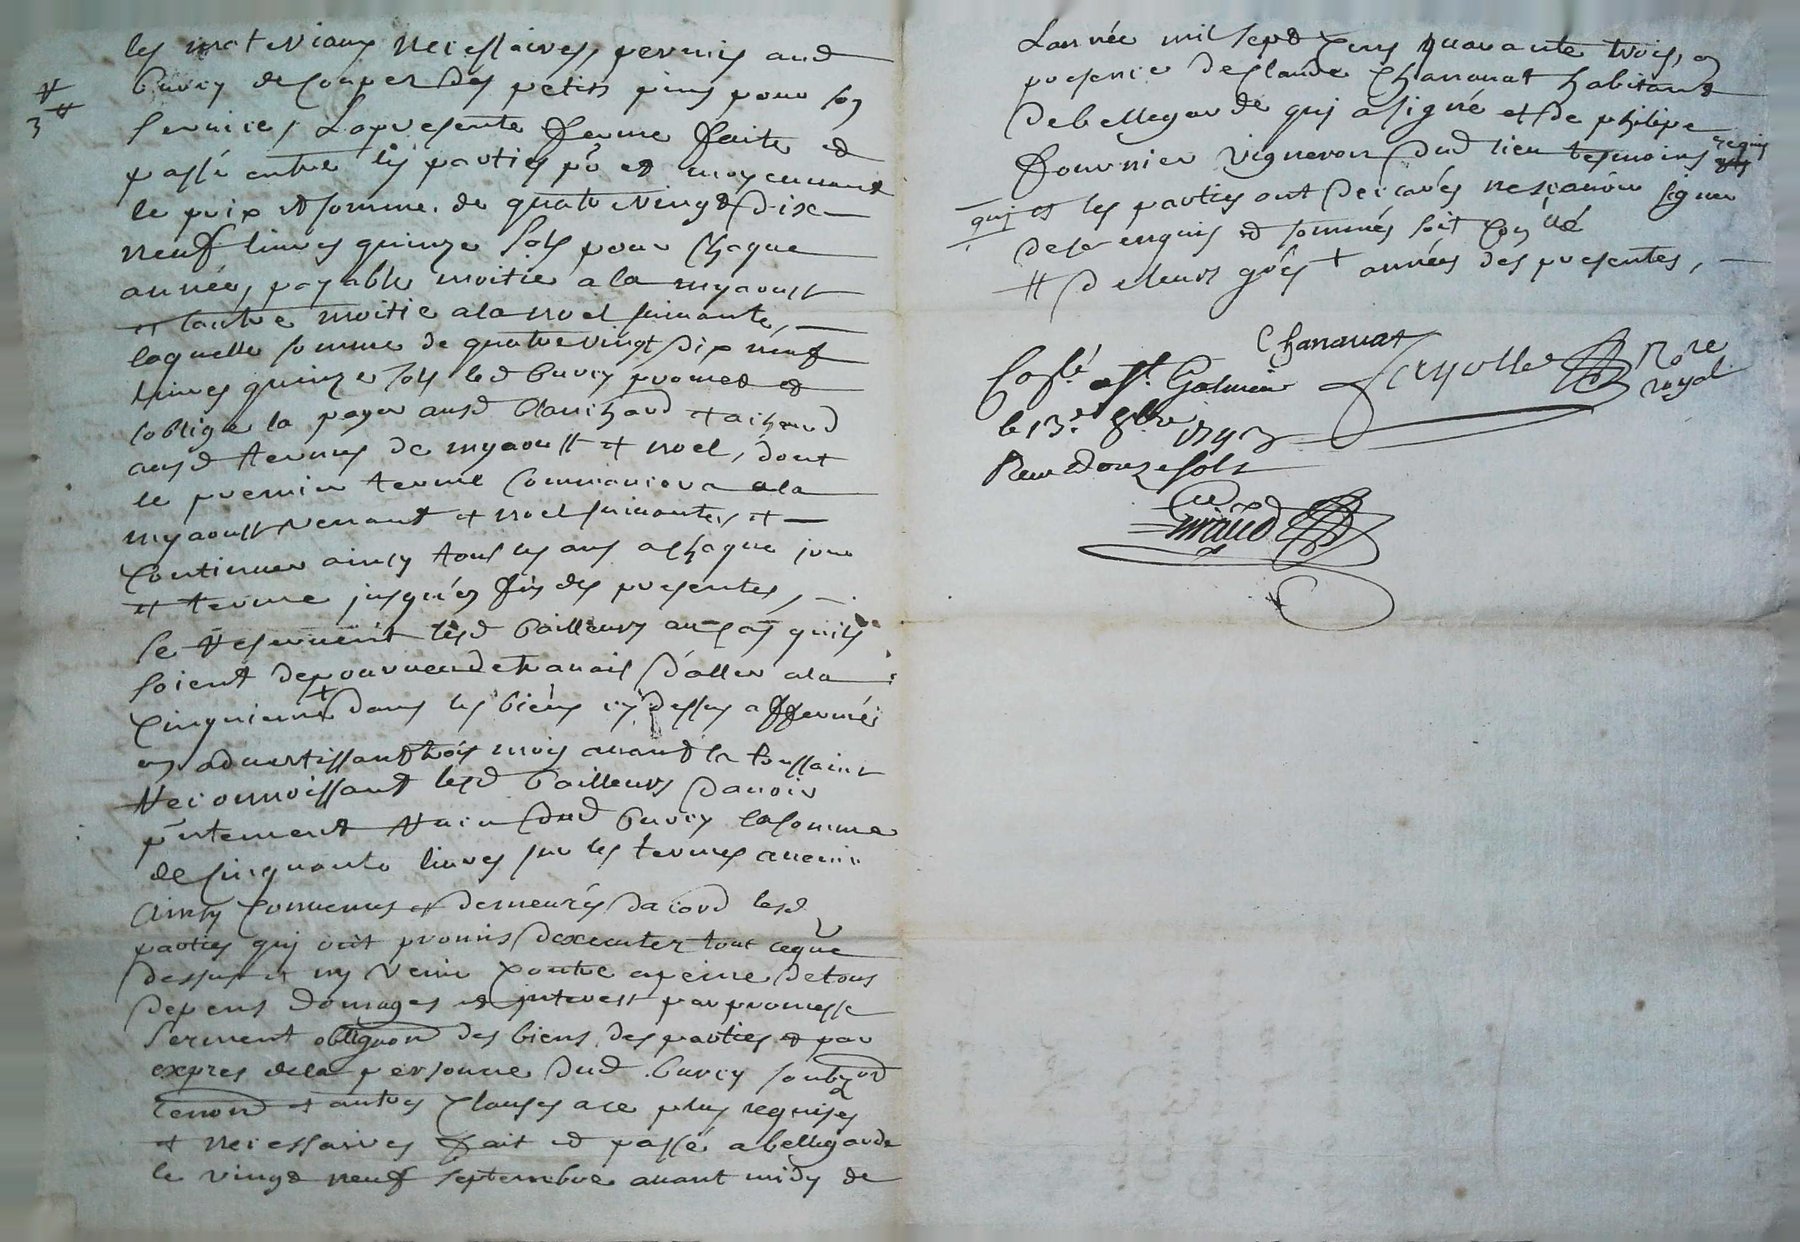 les materiaux necessaires, permis aud
Buvry de couper des petits pins pour son
service, La presente ferme faite et
passé entre les parties po et moyennant
le prix et somme de quatre vingt dix
neuf livres quinze sols pour chaque
année, payable moitié a la myaoust
et lautre moitie a la noel suivante,
laquelle somme de quatrevingt dix neuf
livres quinze sols led Buvry promet et
soblige la payer ausd Blanchard et
ausd termes de myaoust et noel, dont
le premier terme commancera a la
myaoust venant et noel suivante, et
continuer ainsy tous les ans a chaque jour
et terme jusqu'en fin des presentes,
Se reservent lesd bailleurs au cas quils
soient depourveu de travail d'aller a la
cinquieme + dans les biens cy dessus affermés
en advertissant trois mois avant la toussaint
Reconnoissant lesd bailleurs davoir
pntement dud Buvry la somme
de cinquante livres sur les termes avenir
Ainsy convenus et demeurés dacord lesd
parties qui ont promis dexecuter tout ce que
dessus et ny venir contre a peine de tous
depens domages et interest par promesse
serment obligaon des biens des parties et par
expres de la personne dud Buvry
renond et autres clauses a ce plus requises
et necessaires fait et passé a bellegarde
le vingt neuf septembre avant midy de
Lannée mil sept cens quarante trois, en
presence de Claude Chananat habitant
de bellegarde qui a signé et de philipe
fournier vigneron dud lieu tesmoins requis
qui et les parties ont declarés ne scavoir signer
de ce enquis et sommés soit conllé
# de leurs grés + années des presentes,
Chananat
Collé a St Galmier
le 13e 8bre 1743
Reçu douze sols
Nore
royal